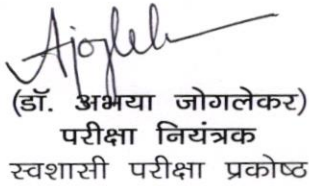 Ajogleka
(डॉ. अभया जोगलेकर)
परीक्षा नियंत्रक
स्वशासी परीक्षा प्रकोष्ठ